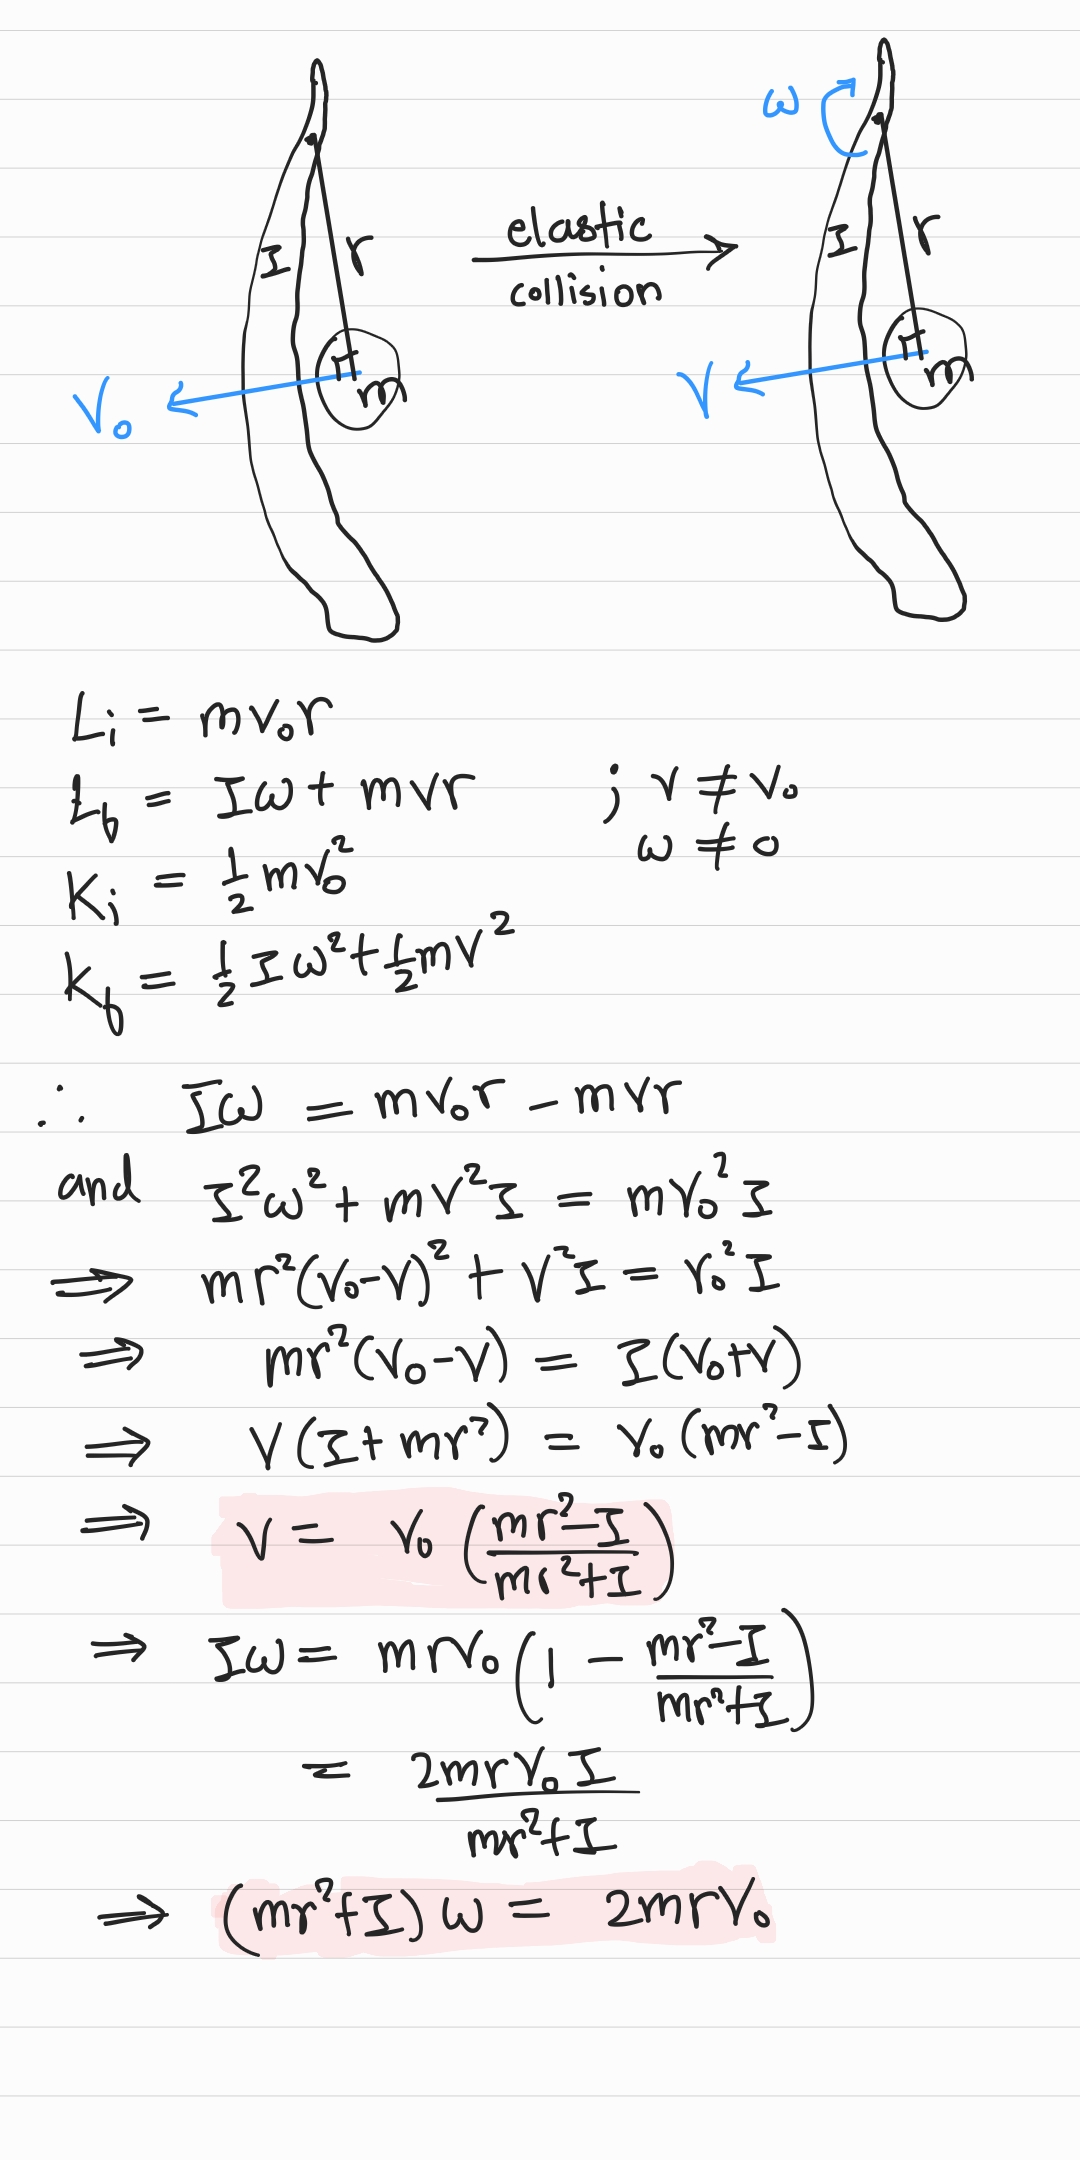 ω
I r
elastic
collision
I r
m
V₀
m
V
Lᵢ = mv₀r
L_f = Iω + mvr ; v ≠ v₀
ω ≠ 0
Kᵢ = ½mv₀²
K_f = ½Iω² + ½mv²
∴ Iω = mv₀r − mvr
and I²ω² + mv²I = mv₀²I
⟹ mr²(v₀−v)² + v²I = v₀²I
⟹ mr²(v₀−v) = I(v₀+v)
⟹ V(I + mr²) = v₀(mr²−I)
⟹ V = v₀((mr²−I)/(mr²+I))
⟹ Iω = mrv₀(1 − (mr²−I)/(mr²+I))
= 2mrv₀I/(mr²+I)
⟹ (mr²+I)ω = 2mrv₀